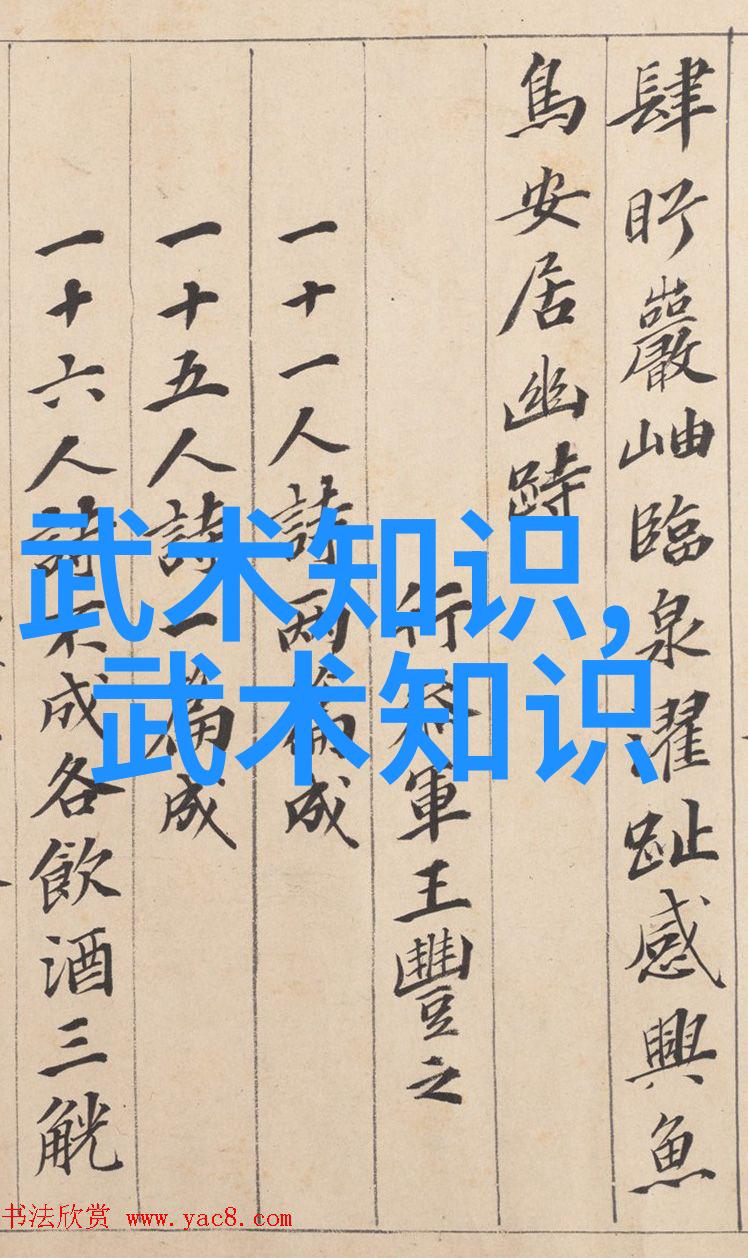 肆盱巖岫臨泉濯趾感興魚
鳥安居幽跱
行參軍王豐之
一十一人詩兩篇成
一十五人詩一篇成
一十六人詩不成各飲酒三觥
武术知识,
武术知识
书法欣赏 www.yac8.com